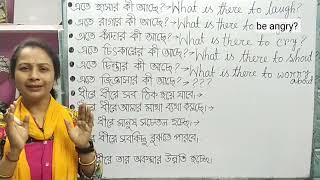 এতে হাসার কী আছে?→What is there to laugh?
এতে রাগার কী আছে?→What is there to be angry?
এতে কাঁদার কী আছে?→What is there to cry?
এতে চিৎকারের কী আছে?→What is there to shout
এতে চিন্তার কী আছে?→What is there to worry about
এতে জিজ্ঞাসার কী আছে?→???
ধীরে ধীরে সব ঠিক হয়ে যাবে।→
ধীরে আমার মাথা ব্যথা কমছে।→
ধীরে মানুষ সচেতন হচ্ছে।→
ধীরে সবকিছু বুঝতে পারবে।
ধীরে তার অবস্থার উন্নতি হচ্ছে।